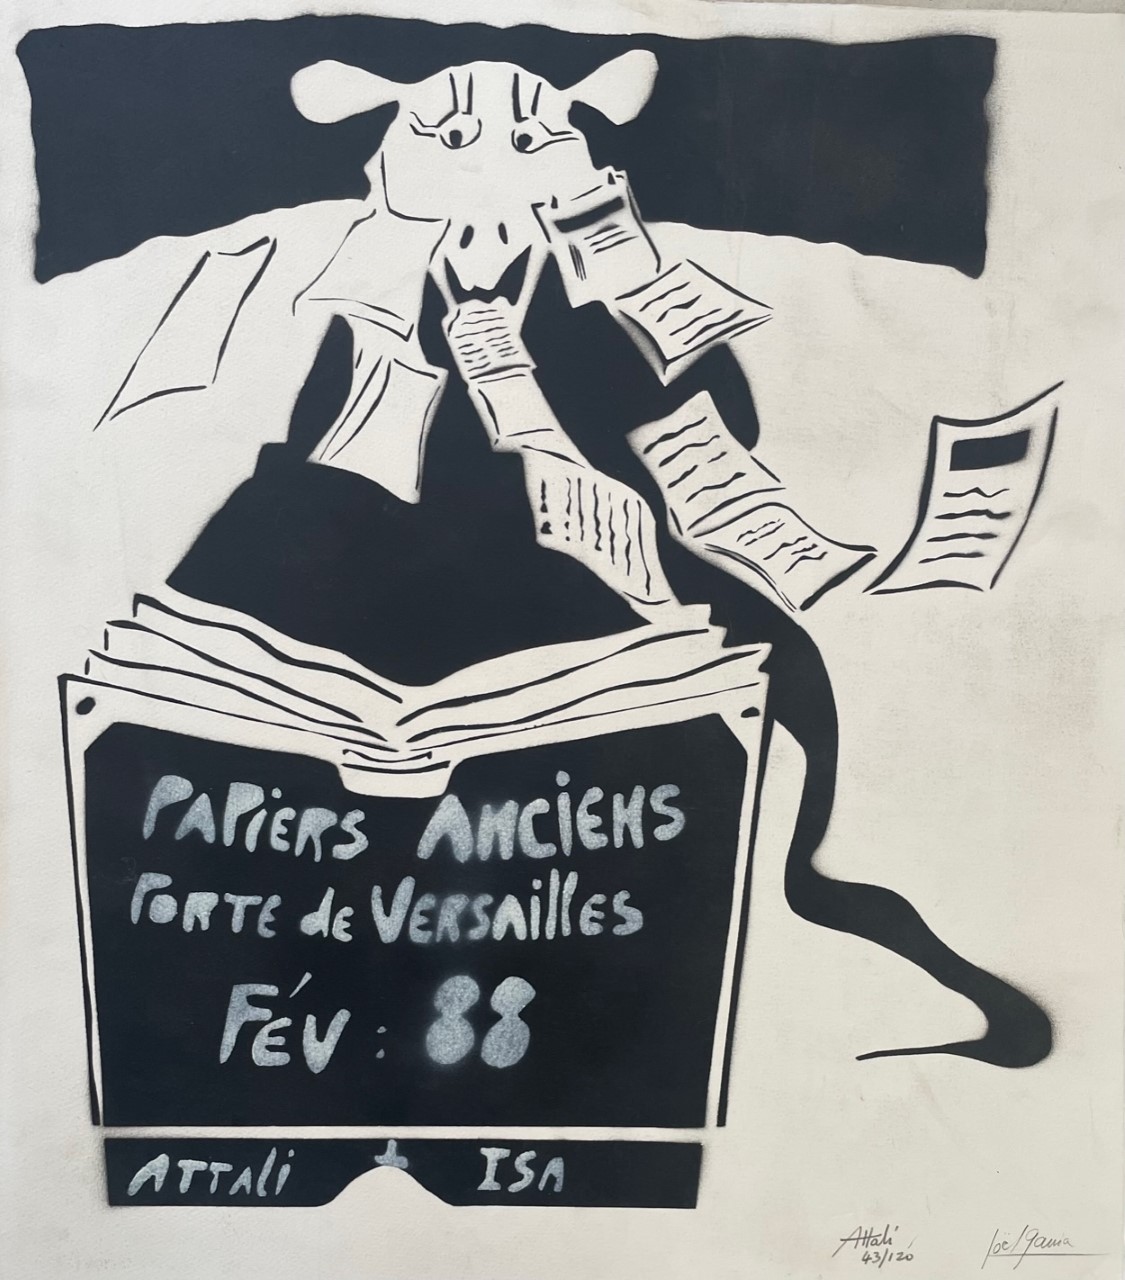 PAPiERS ANCiENS
PORTE de VERSAillES
FÉV : 88
ATTAli + ISA
Attali
43/120